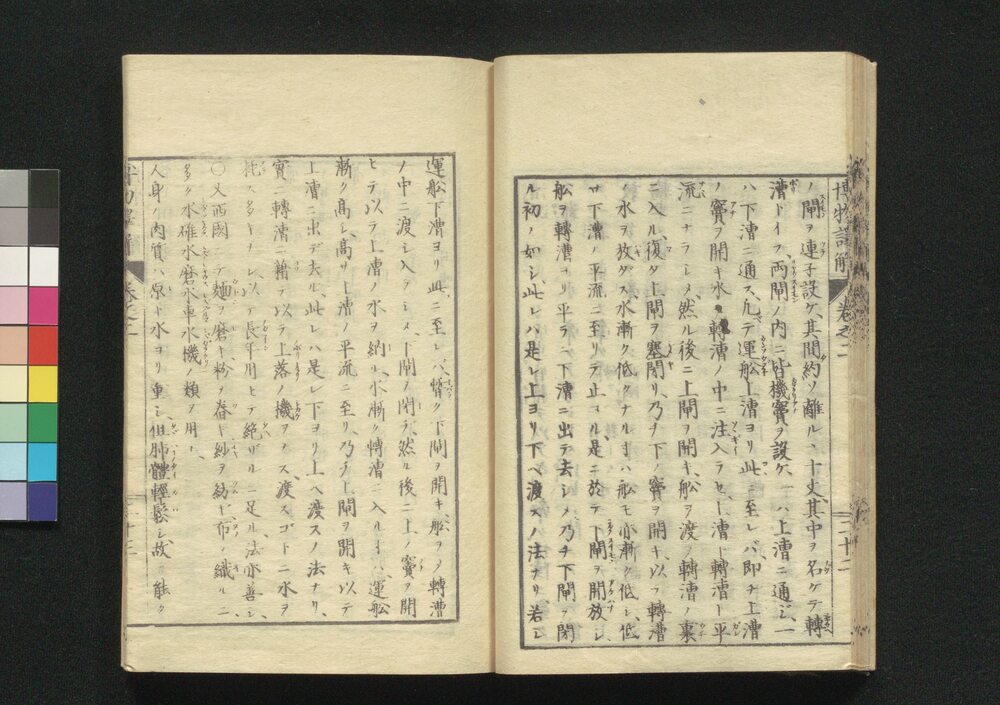 博物語解 卷之二 二十二
ノ閘ヲ連子設ケ、其間約ソ離ルヽ十丈、其中ヲ名ケテ轉
漕トイフ、両閘ノ内ニ皆機竇ヲ設ケ、一ハ上漕ニ通ジ、一
ハ下漕ニ通ス、凢テ運舩上漕ヨリ此ニ至レバ即チ上漕
ノ竇ヲ開キ水轉漕ノ中ニ注入ラセ、上漕ト轉漕ト平
流ニナラシメ、然ル後ニ上閘ヲ開キ、舩ヲ渡ノ轉漕ノ裏
ニ入ル、復タ上閘ヲ塞閉リ、乃チ下ノ竇ヲ開キ、以ラ轉漕
ノ水ヲ放ダス水漸ク低クナルヿハ舩モ亦漸ク低レ、低
サ下漕ノ平流ニ至リテ止マル、是ニ於テ下閘ヲ開放シ
舩ヲ轉漕ヨリ平ラニ下漕ニ出テ去シメ乃チ下閘ヲ閉
ル初ノ如シ此レハ是レ上ヨリ下ヘ渡スノ法ナリ若シ
運舩下漕ヨリ此ニ至レバ、暫ク下閘ヲ開キ、舩ヲノ轉漕
ノ中ニ渡シ入ラシメ、下閘ノ閉ラ、然ル後ニ上ノ竇ヲ開
ヒテ以ラ上漕ノ水ヲ納ル、水漸ク轉漕ニ入ルヿハ、運舩
漸ク高シ、高サ上漕ノ平流ニ至リ、乃チ上閘ヲ開キ以テ
上漕ニ出デ去ル、此レハ是レ下ヨリ上ヘ渡スノ法ナリ、
實ニ轉漕ニ藉テ以ラ上落ノ機ヲナス、渡スゴトニ水ヲ
耗ス多キナレ、以ラ長平用ヒラ絶ザルニ足ル、法亦善シ、
〇又西國 テ麺ヲ磨キ粉ヲ舂キ紗ヲ紡ギ布ノ織ルニ
多ク水碓水磨水車水機ノ類ヲ用ヒ、
人身ノ肉質ハ原ト水ヨリ重シ、但肺體輕鬆シ、故ニ能ク
卷之二 二十三